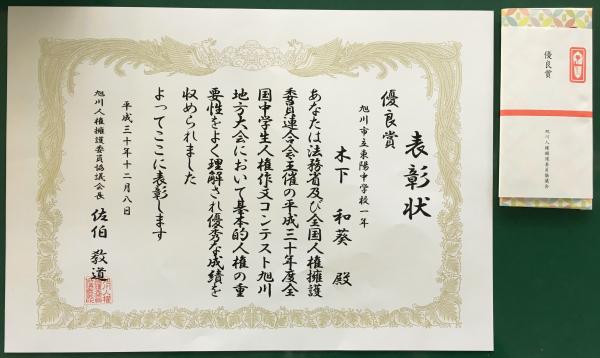 表彰状
優良賞
旭川市立東陽中学校一年
木下 和葵 殿
あなたは法務省及び全国人権擁護
委員連合会主催の平成三十年度全
国中学生人権作文コンテスト旭川
地方大会において基本的人権の重
要性をよく理解され優秀な成績を
収められました
よってここに表彰します
平成三十年十二月八日
旭川人権擁護委員協議会長 佐伯 敎道
優良賞
旭川人権擁護委員協議会